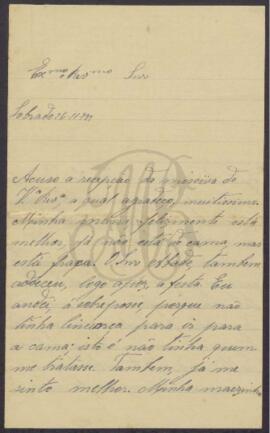 Exmo Revmo Snr
Sobrado 26-11-
Acuso a recepção da missiva de
V. Rvª a qual agradeço, muitissimo.
Minha felizmente está
melhor, já não está de cama, mas
está fraca. O Snr Abbade, tambem
adoeceu, logo apoz, a festa. Eu
andei, á sobreposse, porque não
tinha licença para ir para
a cama; isto é não tinha quem
me tratasse. Tambem, já me
sinto melhor. Minha mãezinha